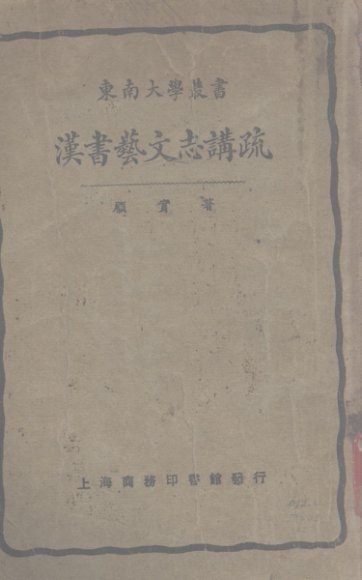 東南大學叢書
漢書藝文志講疏
顧實著
上海商務印書館發行